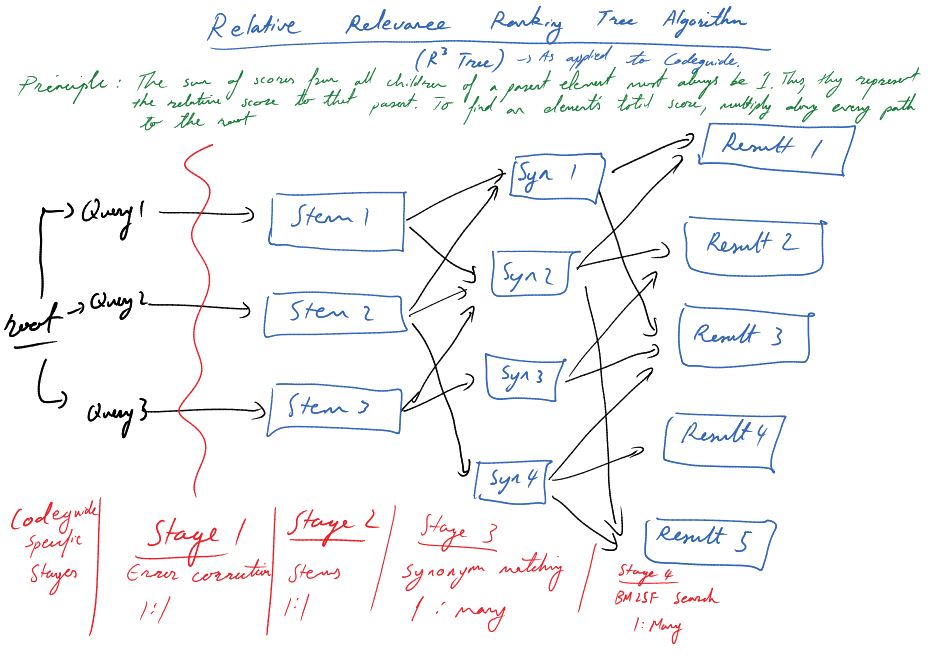 Relative Relevance Ranking Tree Algorithm
(R³ Tree) → As applied to Codeguide.
Principle: The sum of scores from all children of a parent element must always be 1. Thus, they represent
the relative score to that parent. To find an element's total score, multiply along every path
to the root
root
Query 1
Query 2
Query 3
Stem 1
Stem 2
Stem 3
Syn 1
Syn 2
Syn 3
Syn 4
Result 1
Result 2
Result 3
Result 4
Result 5
Codeguide
Specific
Stages
Stage 1
Error correction
1:1
Stage 2
Stems
1:1
Stage 3
Synonym matching
1 : many
Stage 4
BM25F Search
1: Many